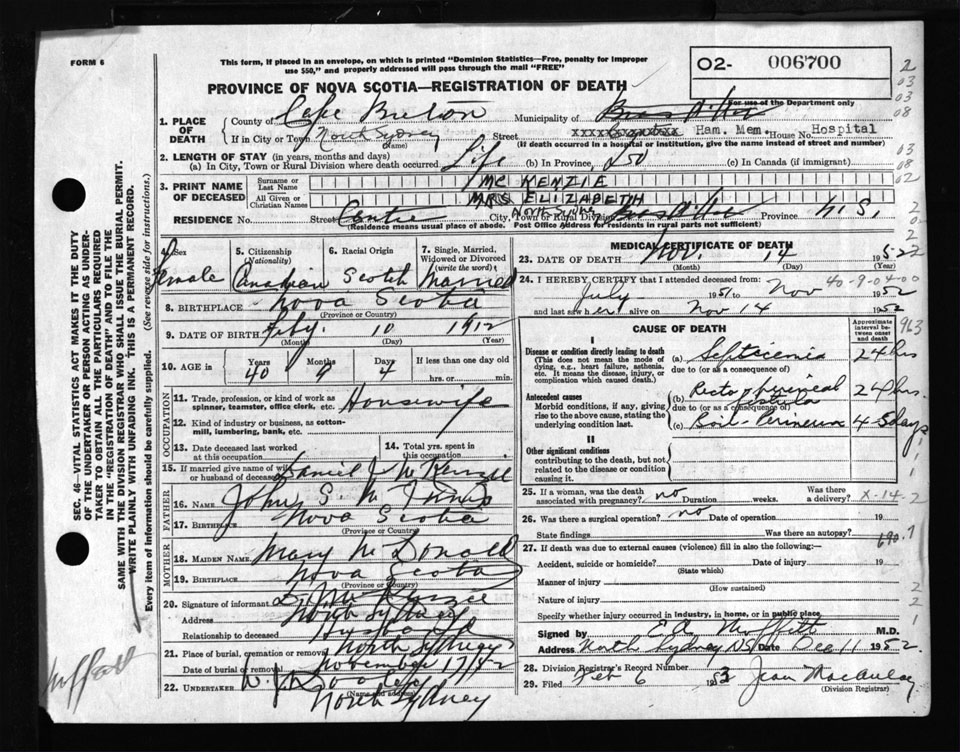 FORM 6
This form, if placed in an envelope, on which is printed "Dominion Statistics—Free, penalty for improper
use $50," and properly addressed will pass through the mail "FREE"
O2- 006700
For use of the Department only
PROVINCE OF NOVA SCOTIA—REGISTRATION OF DEATH
1. PLACE OF DEATH
County of Cape Breton Municipality of
If in City or Town North Sydney (Name) Street xxxxx Ham. Mem. House No. Hospital
(If death occurred in a hospital or institution, give the name instead of street and number)
2. LENGTH OF STAY (in years, months and days)
(a) In City, Town or Rural Division where death occurred Life (b) In Province, (c) In Canada (if immigrant)
3. PRINT NAME OF DECEASED
Surname or Last Name MC KENZIE
All Given or Christian Names MRS ELIZABETH
RESIDENCE No. Street Centre City, Town or Rural Division North Sydney Province N.S.
(Residence means usual place of abode. Post Office Address for residents in rural parts not sufficient)
4. Sex Female
5. Citizenship (Nationality) Canadian
6. Racial Origin Scotch
7. Single, Married, Widowed or Divorced (write the word) Married
8. BIRTHPLACE Nova Scotia
(Province or Country)
9. DATE OF BIRTH Feby. 10 1912
(Month) (Day) (Year)
10. AGE in Years 40 Months 9 Days 4 If less than one day old
hrs. or min.
OCCUPATION
11. Trade, profession, or kind of work as spinner, teamster, office clerk, etc. Housewife
12. Kind of industry or business, as cotton-mill, lumbering, bank, etc.
13. Date deceased last worked at this occupation
14. Total yrs. spent in this occupation
15. If married give name of wife or husband of deceased Daniel J. McKenzie
FATHER
16. NAME John S. McInnis
17. BIRTHPLACE Nova Scotia
(Province or Country)
MOTHER
18. MAIDEN NAME Mary McDonald
19. BIRTHPLACE Nova Scotia
(Province or Country)
20. Signature of informant D. J. McKenzie
Address North Sydney
Relationship to deceased Husband
21. Place of burial, cremation or removal North Sydney
Date of burial or removal November 17/52
22. UNDERTAKER
(Name and address)
North Sydney
MEDICAL CERTIFICATE OF DEATH
23. DATE OF DEATH Nov. 14 1952
(Month) (Day) (Year)
24. I HEREBY CERTIFY that I attended deceased from:
July 1951 to Nov 1952
and last saw her alive on Nov 14 1952
CAUSE OF DEATH
Approximate interval between onset and death
I
Disease or condition directly leading to death (a) Septicemia 24 hrs
(This does not mean the mode of dying, e.g., heart failure, asthenia, etc. It means the disease, injury, or complication which caused death.)
due to (or as a consequence of)
Antecedent causes (b) Recto-perineal fistula 24 hrs.
Morbid conditions, if any, giving rise to the above cause, stating the underlying condition last.
due to (or as a consequence of)
(c) Boil - Perineum 4-5 days
II
Other significant conditions
contributing to the death, but not related to the disease or condition causing it.
25. If a woman, was the death associated with pregnancy? no Duration weeks. Was there a delivery?
X-14-2
26. Was there a surgical operation? no Date of operation 19
State findings Was there an autopsy?
690.1
27. If death was due to external causes (violence) fill in also the following:—
Accident, suicide or homicide? (State which) Date of injury 19
Manner of injury (How sustained)
Nature of injury
Specify whether injury occurred in industry, in home, or in public place.
Signed by Moffitt M.D.
Address North Sydney NS Date Dec 11 1952.
28. Division Registrar's Record Number
29. Filed Feb 6 1953 Jean MacAulay
(Division Registrar)
SEC. 46—VITAL STATISTICS ACT MAKES IT THE DUTY
OF THE UNDERTAKER OR PERSON ACTING AS UNDERTAKER
TO OBTAIN ALL THE PARTICULARS REQUIRED
IN THE "REGISTRATION OF DEATH" AND TO FILE THE
SAME WITH THE DIVISION REGISTRAR WHO SHALL ISSUE THE BURIAL PERMIT.
WRITE PLAINLY WITH UNFADING INK. THIS IS A PERMANENT RECORD.
Every item of information should be carefully supplied. (See reverse side for instructions.)